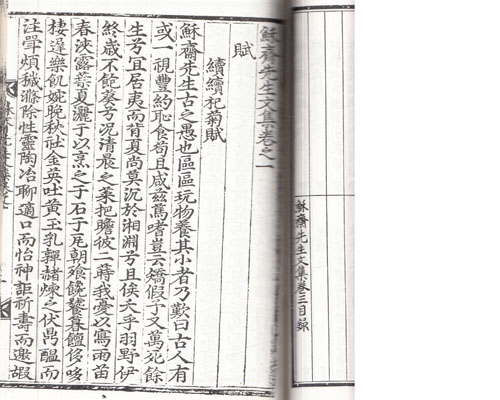 穌齋先生文集卷之一
賦
續續杞菊賦
穌齋先生古之愚也區區玩物養其小者乃歎曰古人有
或一視豐約恥食苟且咸兹篤嗜豈云矯假子又萬死餘
生芳宜居夷而背夏尚莫沉於湘淵芳且俟夭乎羽野伊
終歲不飽葵芳况清晨之菜把瞻彼二蒔我憂以寫雨苗
春浹露蘂夏灑于以烹之于石于瓦朝飧饞饕暮饘侈哆
棲遑樂飢婉晚秋社金英吐黃玉乳嚲赭煉之伏鼎醞而
注斝煩穢滌除性靈陶冶聊適口而怡神詎祈壽而邀嘏
穌齋先生文集卷三目錄